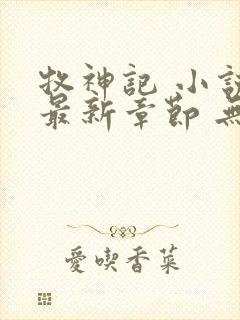 牧神記 小說
最新章節 無
愛喫香菜